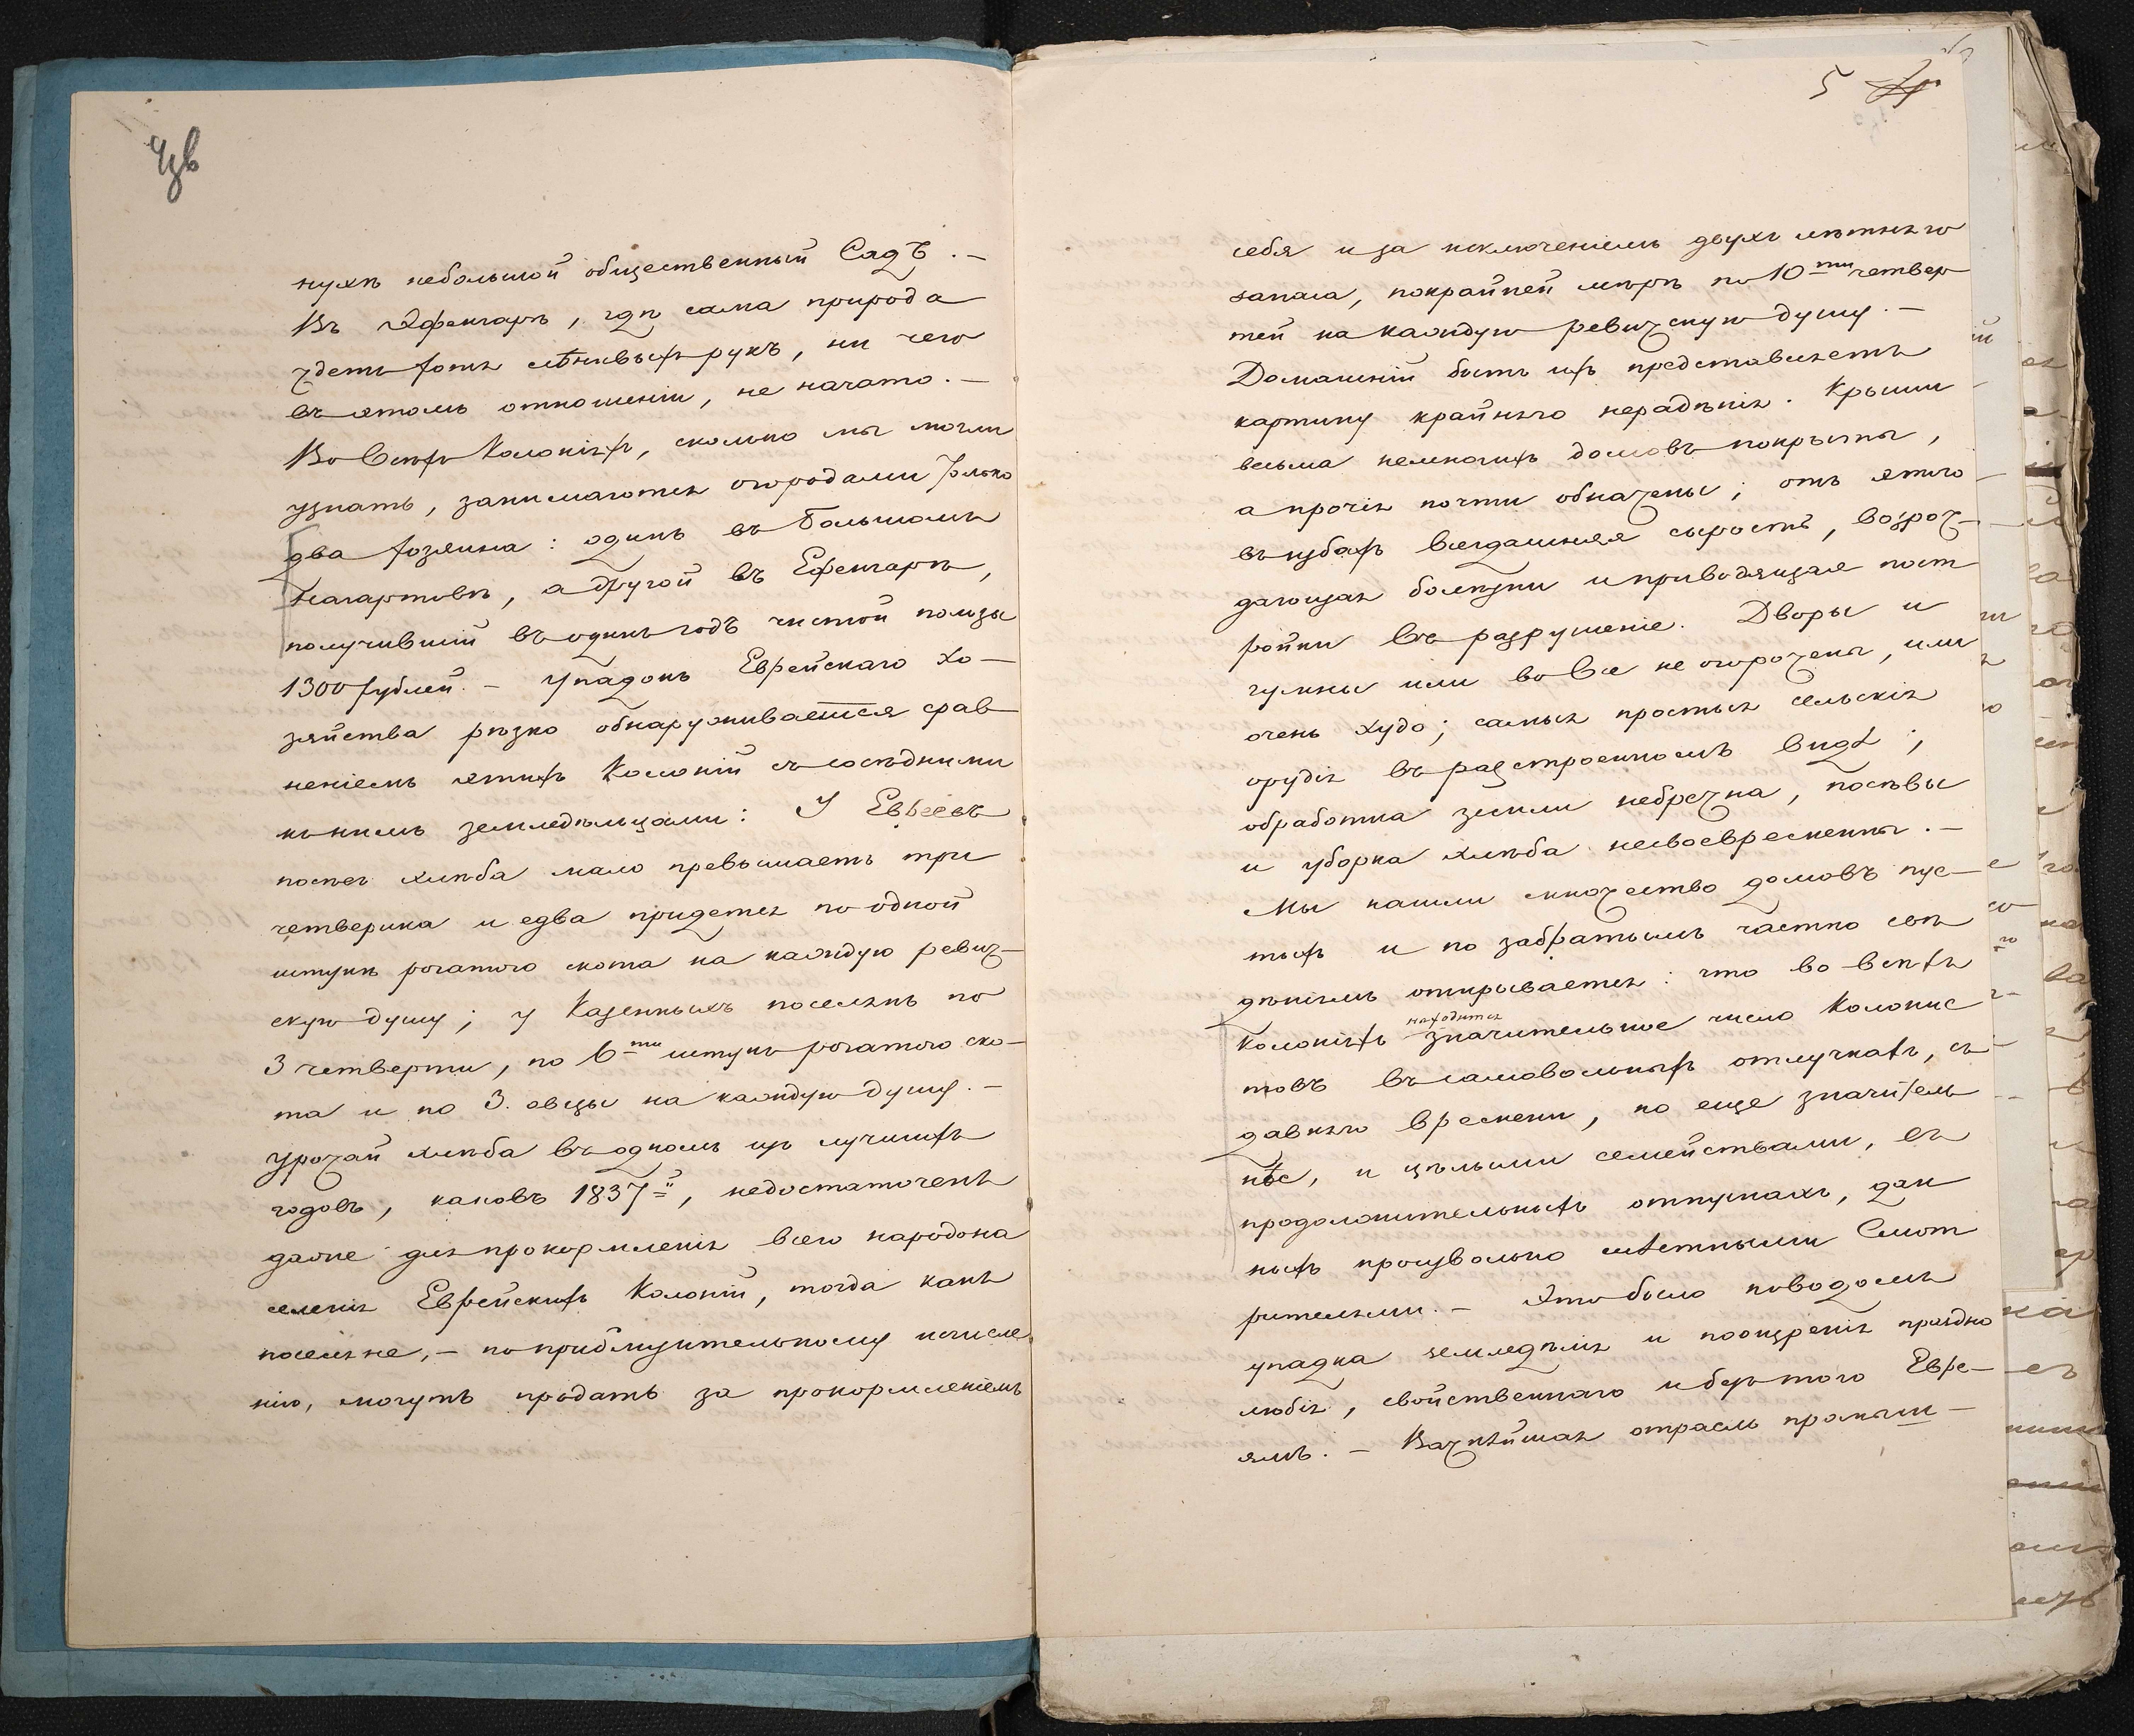 нухъ небольшой общественный Садъ. —
Въ Эфенгарѣ, гдѣ сама природа
ждетъ только лѣнивыхъ рукъ, ни чего
въ этомъ отношеніи, не начато. —
Во Всѣхъ Колоніяхъ, сколько мы могли
узнать, занимаются огородами только
два хозяина: одинъ въ Большомъ
Нагартовѣ, а другой въ Ефенгарѣ,
получившій въ одинъ годъ чистой пользы
1300 рублей. — Упадокъ Еврейскаго Хо—
зяйства рѣзко обнаруживается срав
неніемъ этихъ Колоній съ сосѣдними
къ нимъ земледѣльцами: У Евреевъ
посѣвъ хлѣба мало превышаетъ три
четверика и едва придется по одной
штукѣ рогатого скота на каждую ревиз—
скую душу; у Казенныхъ поселянъ по
3 четверти, по 6ти штукъ рогатого ско—
та и по 3. овцы на каждую душу. —
Урожай хлѣба въ одномъ изъ лучшихъ
годовъ, каковъ 1837й, недостаточенъ
даже для прокормленія всего народона
селенія Еврейскихъ Колоній, тогда какъ
поселяне, — по приблизительному исчисле
нію, могутъ продать за прокормленіемъ
5
себя и за исключеніемъ двухъ лѣтняго
запаса, покрайней мѣрѣ по 10ти четвер
тей на каждую ревизскую душу. —
Домашній бытъ ихъ представляетъ
картину крайняго нерадѣнія. Крыши
весьма немногихъ домовъ покрыты,
а прочія почти обнажены; отъ этого
въ избахъ всегдашняя сырость, возрож—
дающая болѣзни и приводящая пост
ройки въ разрушеніе. Дворы и
гумны или во Все не огорожены, или
очень худо; самыя простыя сельскія
орудія въ разстроенномъ видѣ;
обработка земли небрежна, посѣвы
и уборка хлѣба несвоевременны. —
Мы нашли множество домовъ пус—
тыхъ и по забратымъ частно свѣ
дѣніямъ открывается: что во всѣхъ
Колоніяхъ находится значительное число Колонис
товъ въ самовольныхъ отлучкахъ, съ
давняго времени, но еще значитель
нѣе, и цѣлыми семействами, въ
продолжительныхъ отпускахъ, дан
ныхъ произвольно мѣстными Смот
рителями. — Это было поводомъ
упадка земледѣлія и поощренія праздно
любія, свойственнаго и безъ того Евре—
ямъ. — Важнѣйшая отрасль промыш—